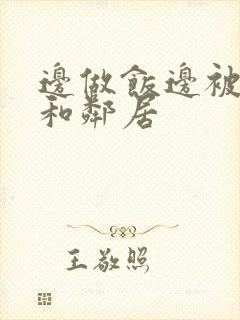 邊做飯邊被
和鄰居
王敬照